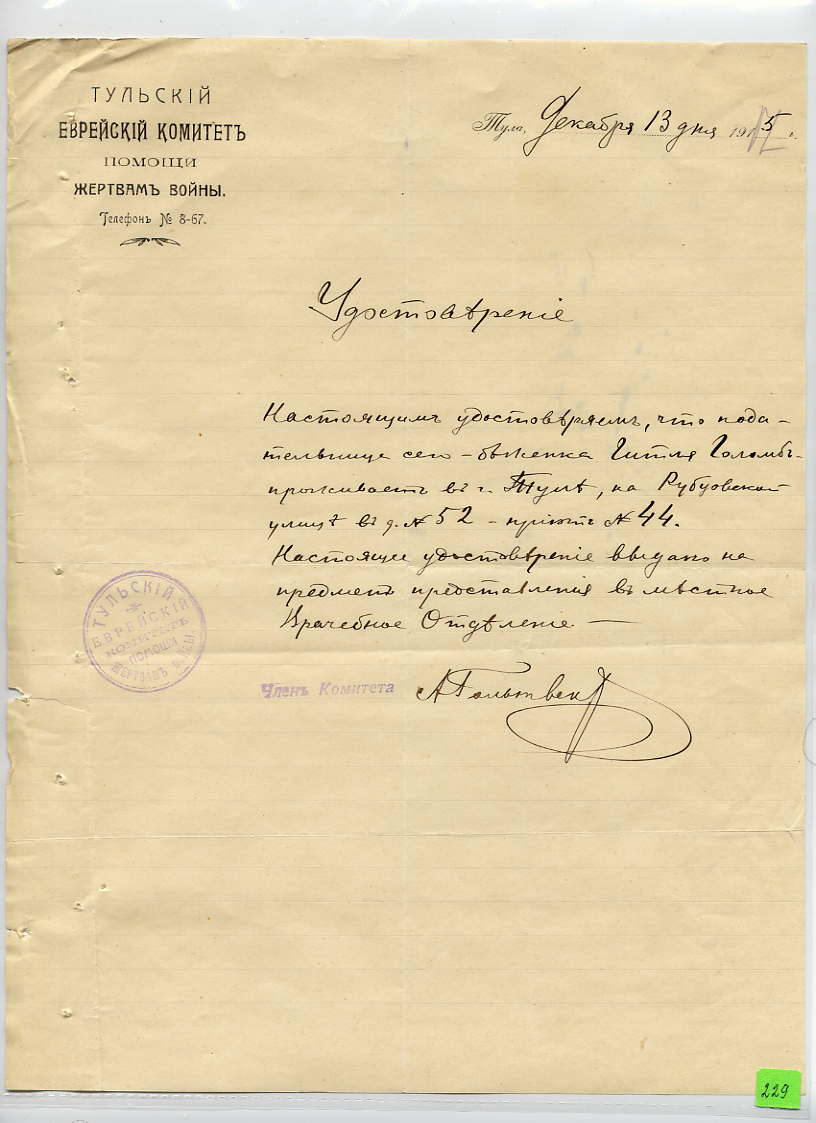 ТУЛЬСКІЙ
ЕВРЕЙСКІЙ КОМИТЕТЪ
ПОМОЩИ
ЖЕРТВАМЪ ВОЙНЫ.
Телефонъ № 8-67.
Тула, Декабря 13 дня 1915 г.
Удостовѣреніе
Настоящимъ удостовѣряемъ, что пода-
тельница сего - бѣженка Гитля Голомбъ
проживаетъ въ г. Тулѣ, на
улицѣ въ д. № 52 - пріютъ № 44.
Настоящее удостовѣреніе выдано на
предметъ представленія въ мѣстное
Врачебное Отдѣленіе —
ТУЛЬСКІЙ
ЕВРЕЙСКІЙ
КОМИТЕТЪ
ПОМОЩИ
ЖЕРТВАМЪ ВОЙНЫ
Членъ Комитета
229